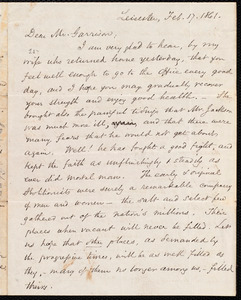 Leicester, Feb. 17. 1861.
Dear Mr. Garrison,
I am very glad to hear, by my
wife who returned home yesterday, that you
feel well enough to go to the Office every good
day, and I hope you may gradually recover
your strength and enjoy good health. — She
brought also the painful tidings that Mr. Jackson
was much more ill, and that there were
many fears that he would not get about
again. Well! he has fought a good fight, and
kept the faith as unflinchingly & steadily as
ever did mortal man. The early & original
Abolitionists were surely a remarkable company
of men and women — the salt and select few
gathered out of the nation's millions. Their
places when vacant will never be filled. Let
us hope that other places, as demanded by
the progressive times, will be as well filled as
they, many of whom no longer among us, filled
theirs.